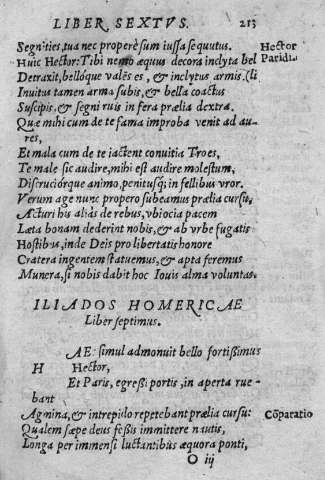 LIBER SEXTVS. 213
Segnities, tua nec properè sum iussa sequutus. Hector
Huic Hector: Tibi nemo æquus decora inclyta bel Paridi.
Detraxit, bellóque vales es, & inclytus armis. (li
Inuitus tamen arma subis, & bella coactus
Suscipis, & segni ruis in fera prælia dextra.
Quæ mihi cum de te fama improba venit ad au-
res,
Et mala cum de te iactent conuitia Troes,
Te male sic audire, mihi est audire molestum,
Discruciórque animo, penitusq; in fellibus vror.
Verum age nunc propero subeamus prælia cursu.
Acturi his aliàs de rebus, vbi ocia pacem
Læta bonam dederint nobis, & ab vrbe fugatis
Hostibus, inde Deis pro libertatis honore
Cratera ingentem statuemus, & apta feremus
Munera, si nobis dabit hoc Iouis alma voluntas.
ILIADOS HOMERICAE
Liber septimus.
HAE: simul admonuit bello fortißimus
Hector,
Et Paris, egreßi portis, in aperta rue-
bant
Agmina, & intrepido repetebant prælia cursu: Cōparatio
Qualem sæpe deus feßis immittere nautis,
Longa per immensi luctantibus æquora ponti,
O iij